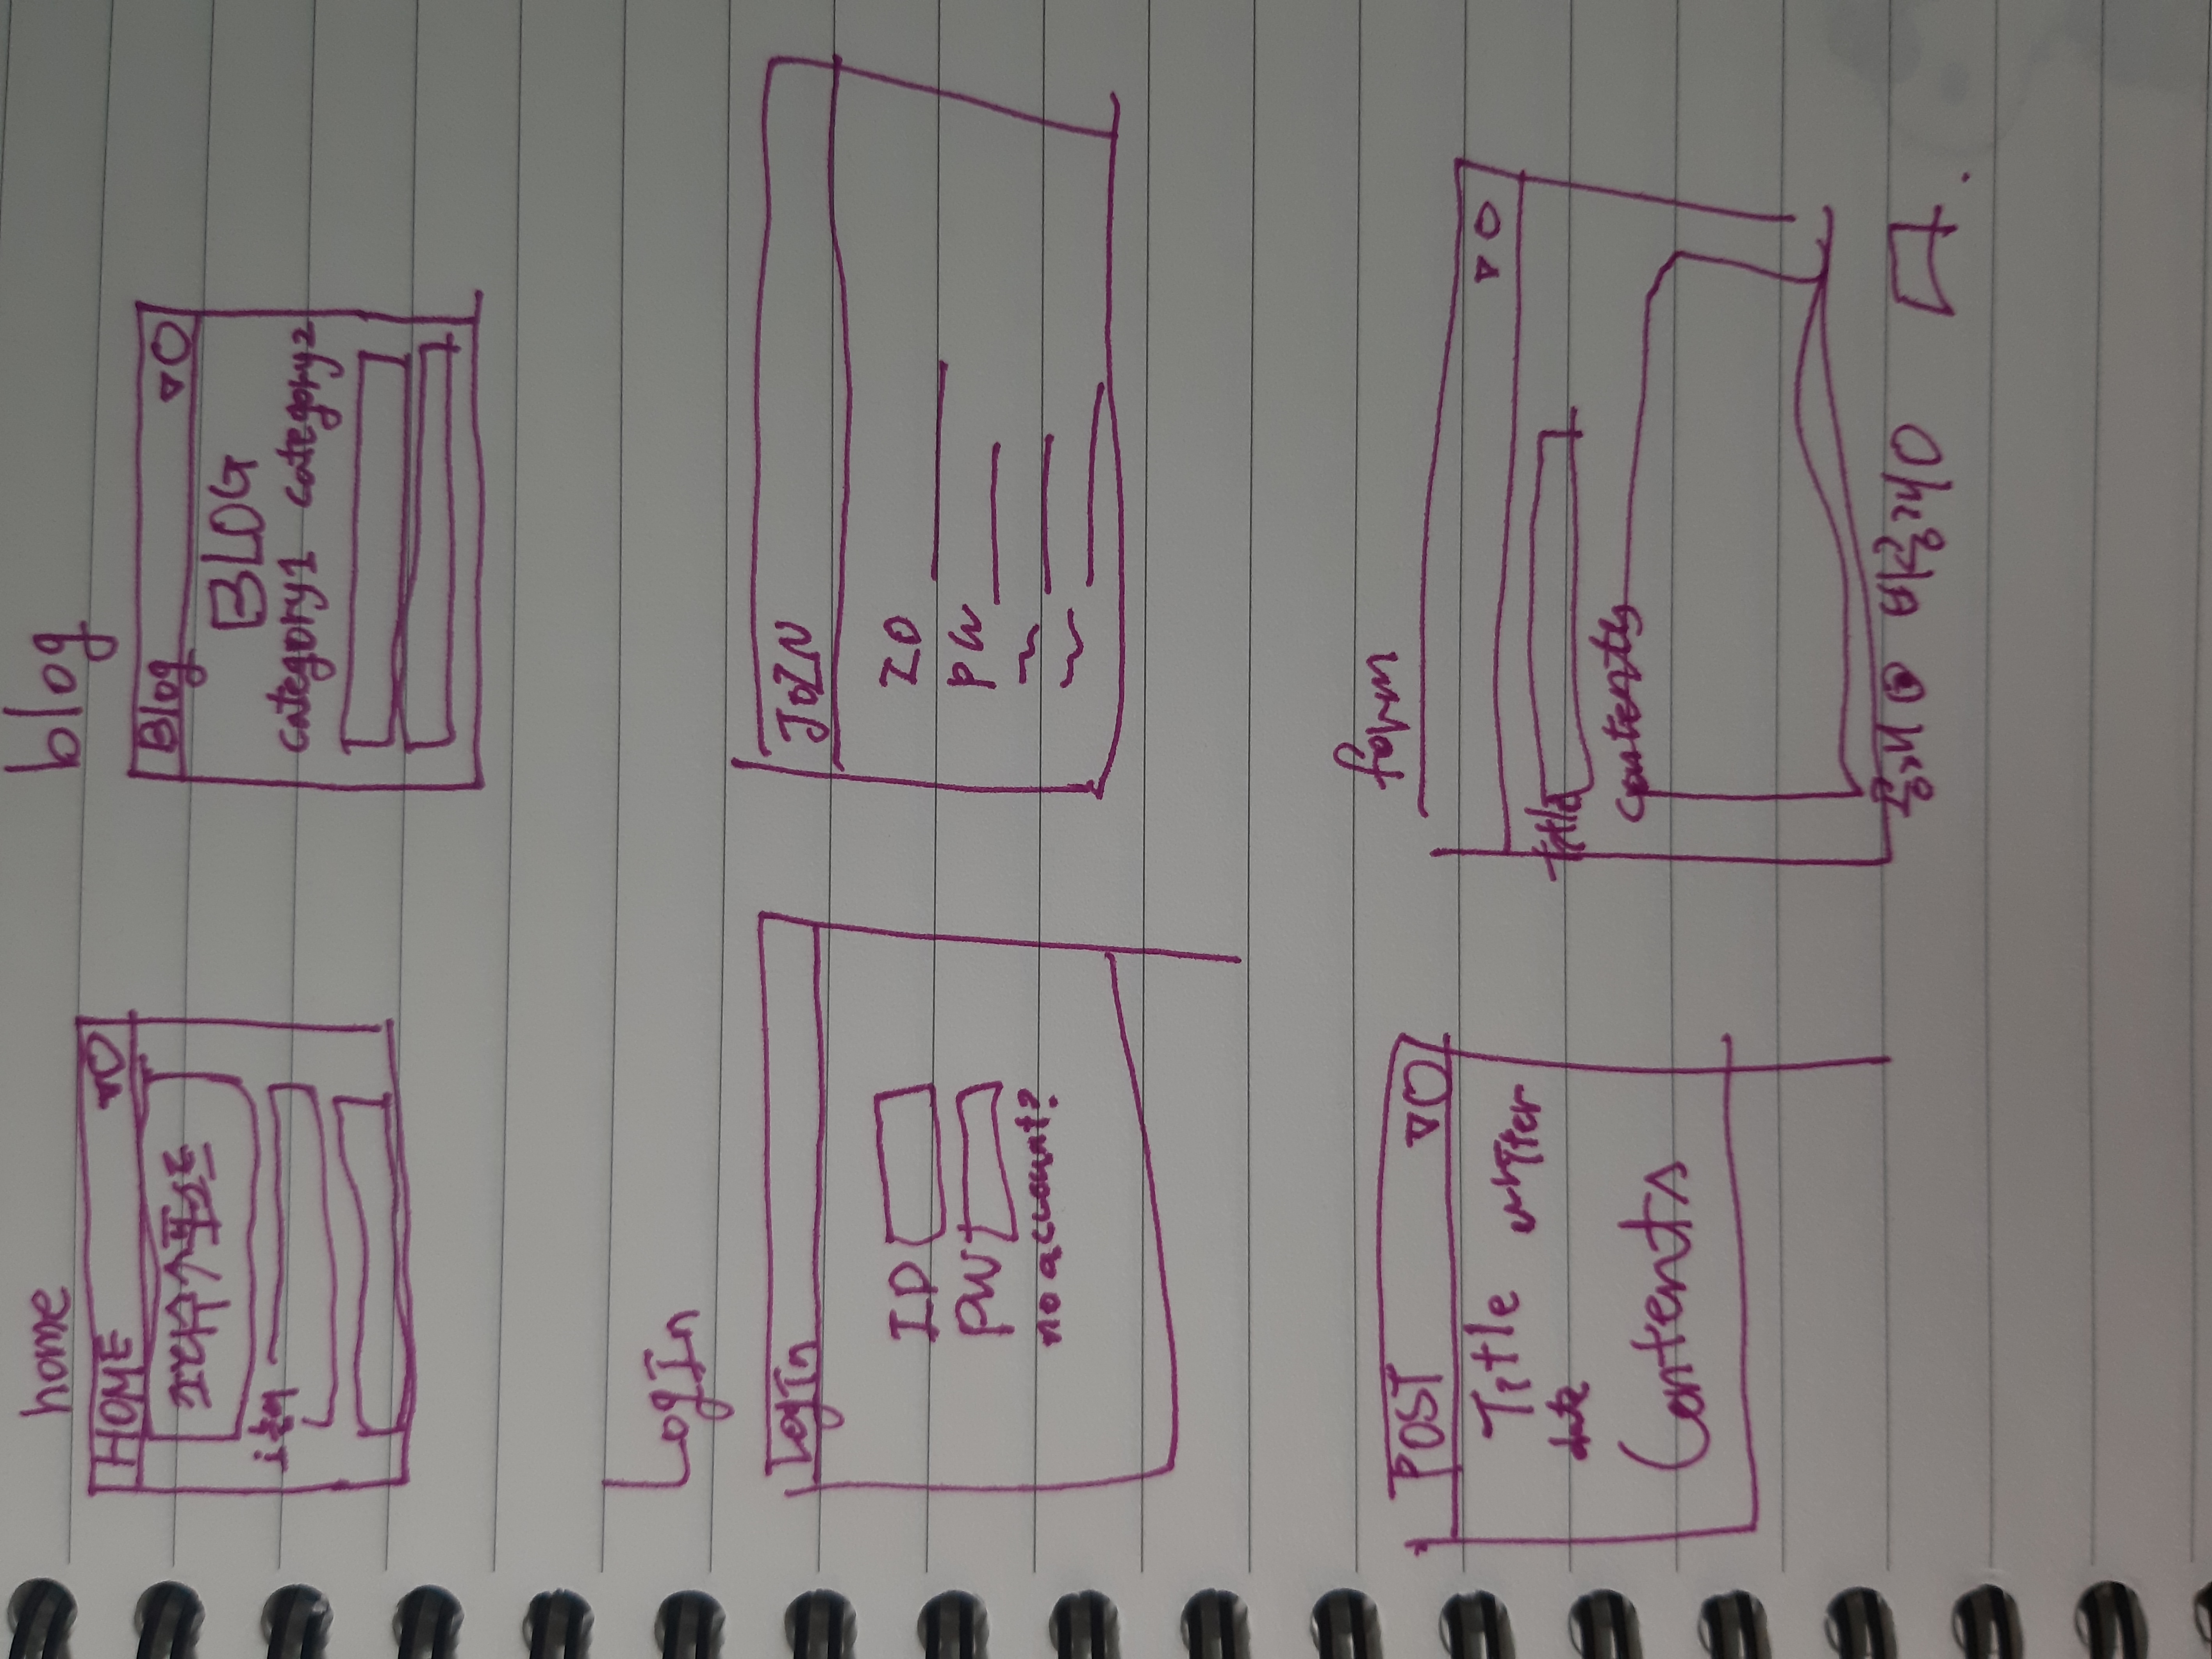 home
HOME
조회수↑포스트
blog
Blog
BLOG
category1 category2
LogIn
LogIn
ID
PW
no account?
JOIN
ID
PW
POST
Title writer
date
Contents
form
title
contents
공개 비공개